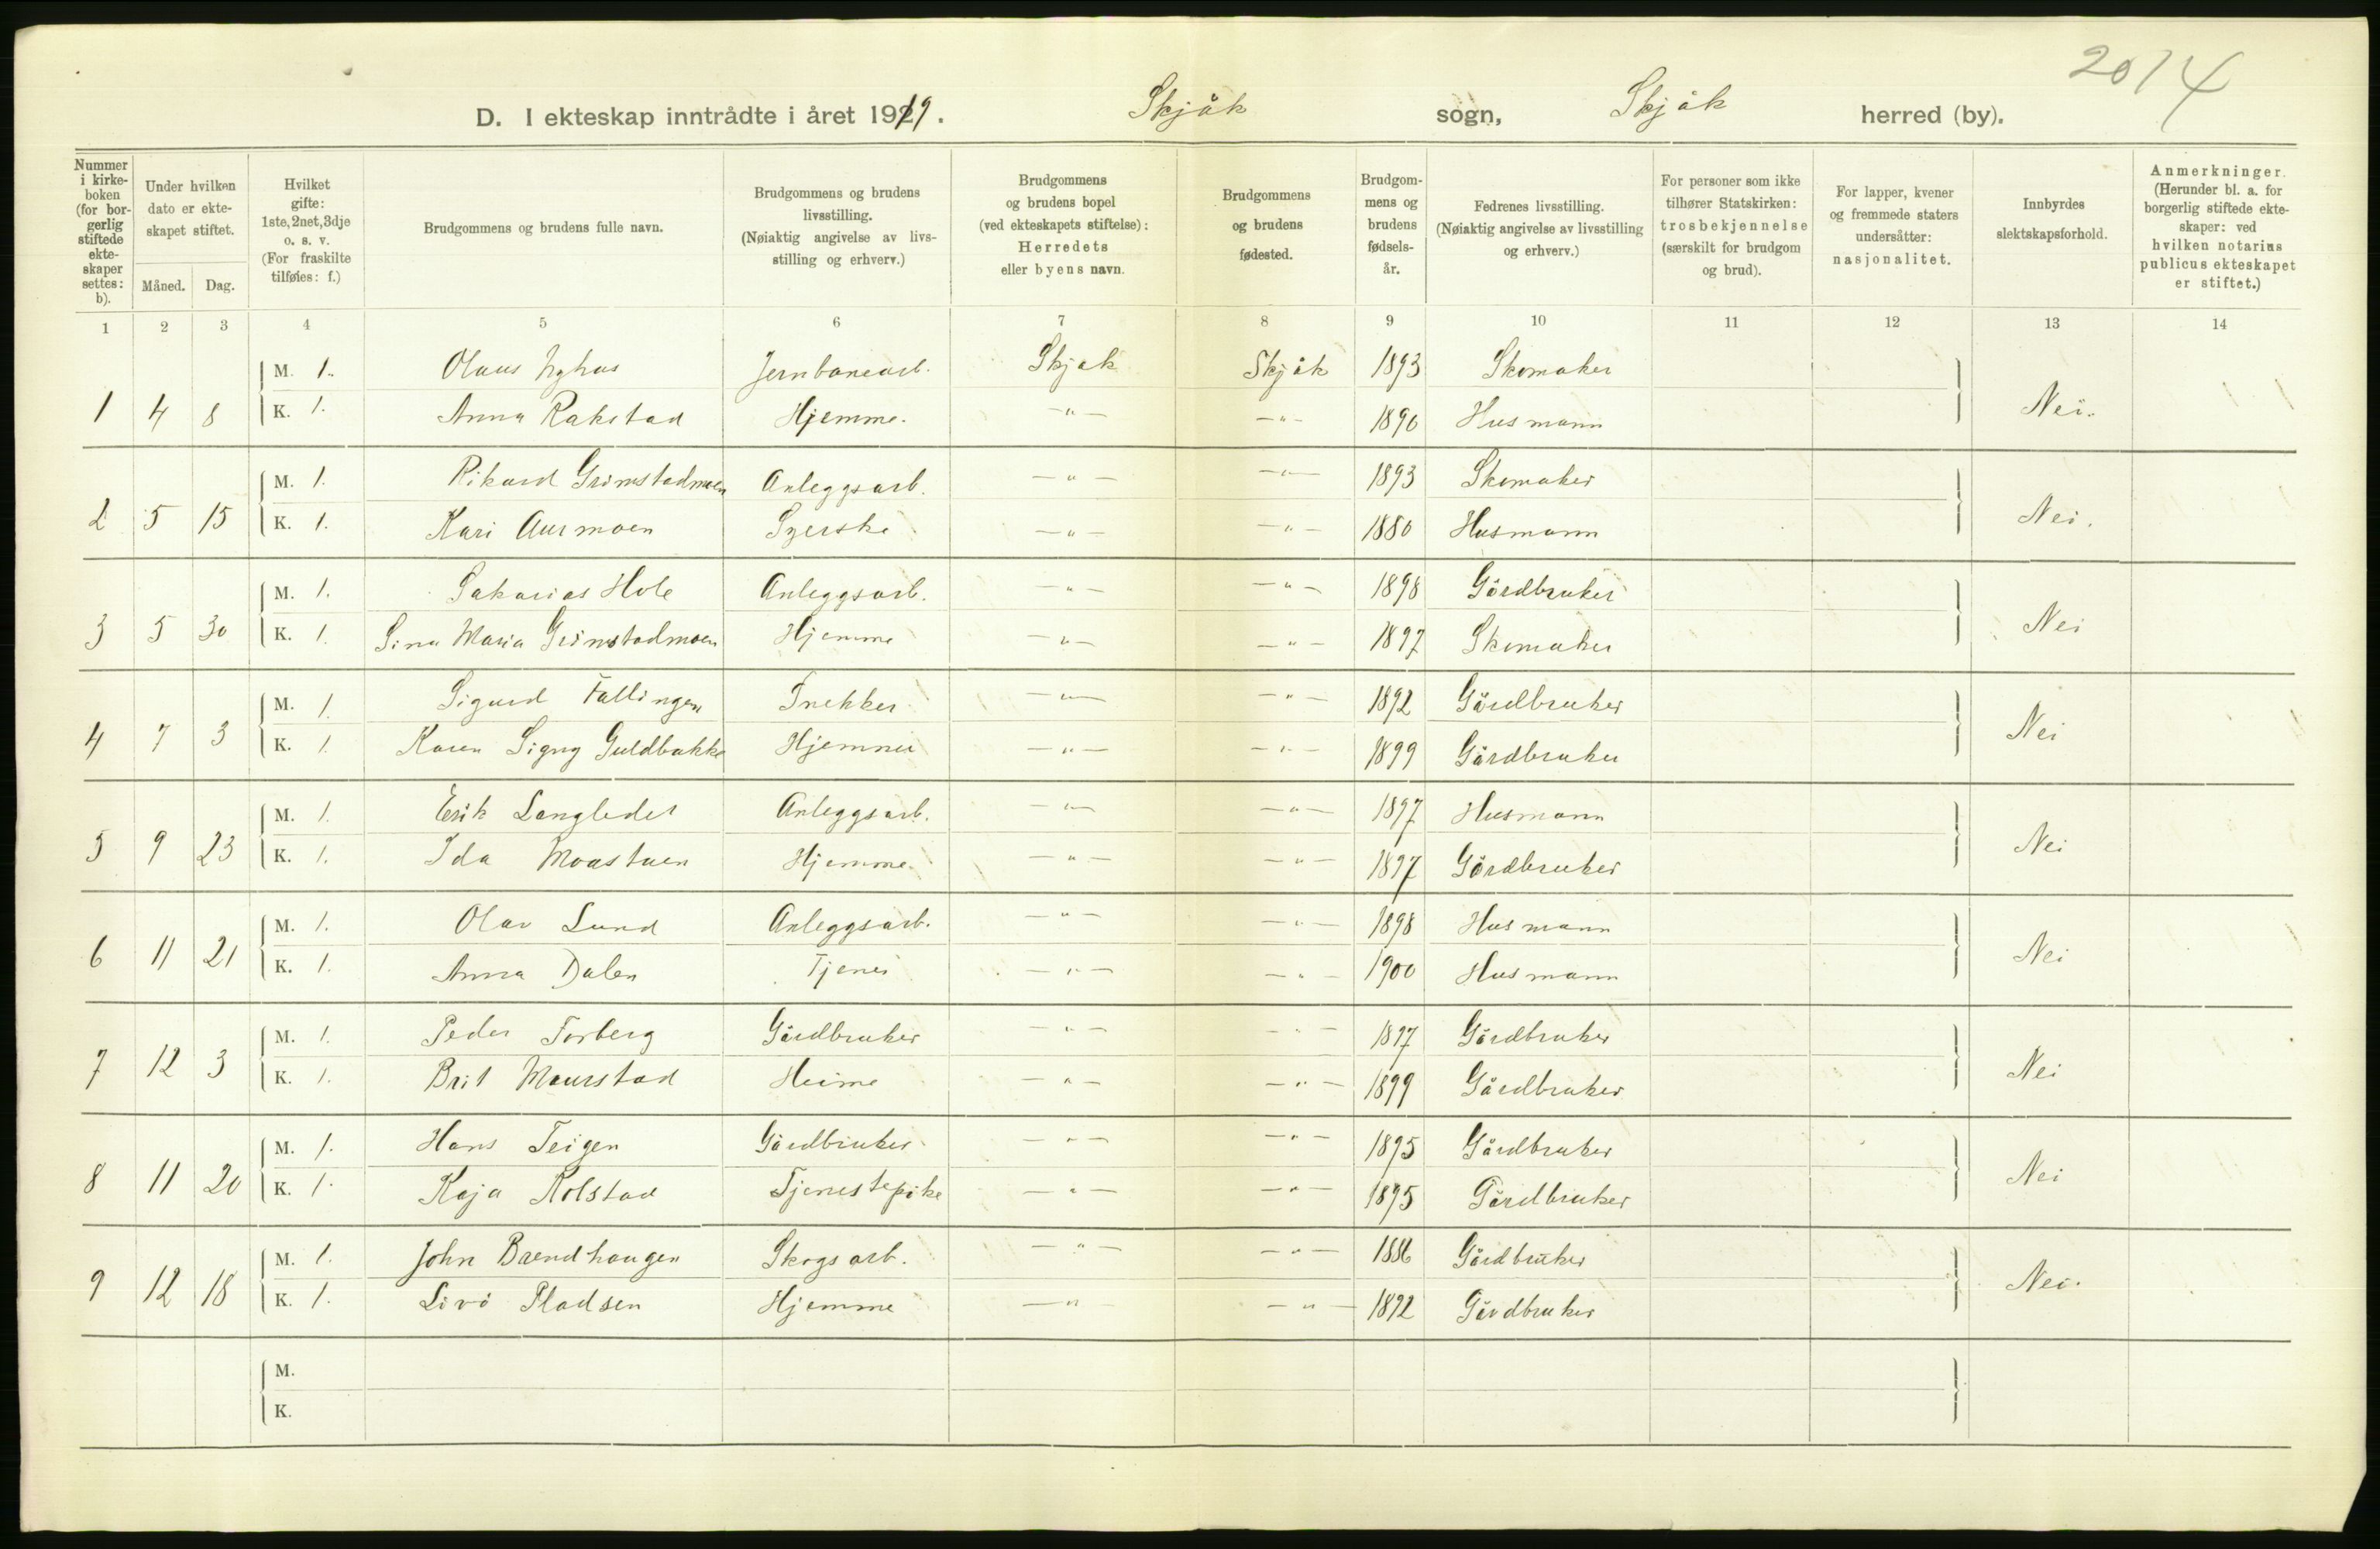 2014
D. I ekteskap inntrådte i året 1919. Skjåk sogn, Skjåk herred (by).
Nummer i kirkeboken (for borgerlig stiftede ekteskaper settes: b).
Under hvilken dato er ekteskapet stiftet. Måned. Dag.
Hvilket gifte: 1ste, 2net, 3dje o. s. v. (For fraskilte tilføies: f.)
Brudgommens og brudens fulle navn.
Brudgommens og brudens livsstilling. (Nøiaktig angivelse av livsstilling og erhverv.)
Brudgommens og brudens bopel (ved ekteskapets stiftelse): Herredets eller byens navn.
Brudgommens og brudens fødested.
Brudgommens og brudens fødselsår.
Fedrenes livsstilling. (Nøiaktig angivelse av livsstilling og erhverv.)
For personer som ikke tilhører Statskirken: trosbekjennelse (særskilt for brudgom og brud).
For lapper, kvener og fremmede staters undersåtter: nasjonalitet.
Innbyrdes slektskapsforhold.
Anmerkninger. (Herunder bl. a. for borgerlig stiftede ekteskaper: ved hvilken notarius publicus ekteskapet er stiftet.)
1 2 3 4 5 6 7 8 9 10 11 12 13 14
M. 1. Olaus Jernbanearb. Skjåk Skjåk 1893 Skomaker
1 4 8 K. 1. Anna Rakstad Hjemme. —"— —"— 1890 Husmann Nei.
M. 1. Rikard Grimstadmoen Anleggsarb. —"— —"— 1893 Skomaker
2 5 15 K. 1. Kari Aurmoen Syerske —"— —"— 1880 Husmann Nei.
M. 1. Sakarias Hole Anleggsarb. —"— —"— 1898 Gårdbruker
3 5 30 K. 1. Sina Maria Grimstadmoen Hjemme —"— —"— 1897 Skomaker Nei
M. 1. Sigurd Fallingen Snekker —"— —"— 1892 Gårdbruker
4 7 3 K. 1. Karen Signy Guldbakke Hjemme —"— —"— 1899 Gårdbruker Nei
M. 1. Erik Langledet Anleggsarb. —"— —"— 1897 Husmann
5 9 23 K. 1. Ida Moastuen Hjemme. —"— —"— 1897 Gårdbruker Nei
M. 1. Olav Lund Anleggsarb. —"— —"— 1898 Husmann
6 11 21 K. 1. Anna Dalen Tjener —"— —"— 1900 Husmann Nei
M. 1. Peder Forberg Gårdbruker —"— —"— 1897 Gårdbruker
7 12 3 K. 1. Brit Maurstad Heime —"— —"— 1899 Gårdbruker Nei
M. 1. Hans Teigen Gårdbruker —"— —"— 1895 Gårdbruker
8 11 20 K. 1. Kaja Kolstad Tjenestepike —"— —"— 1895 Gårdbruker Nei
M. 1. John Brendhaugen Skogsarb. —"— —"— 1886 Gårdbruker
9 12 18 K. 1. Livó Pladsen Hjemme —"— —"— 1892 Gårdbruker Nei.
M.
K.